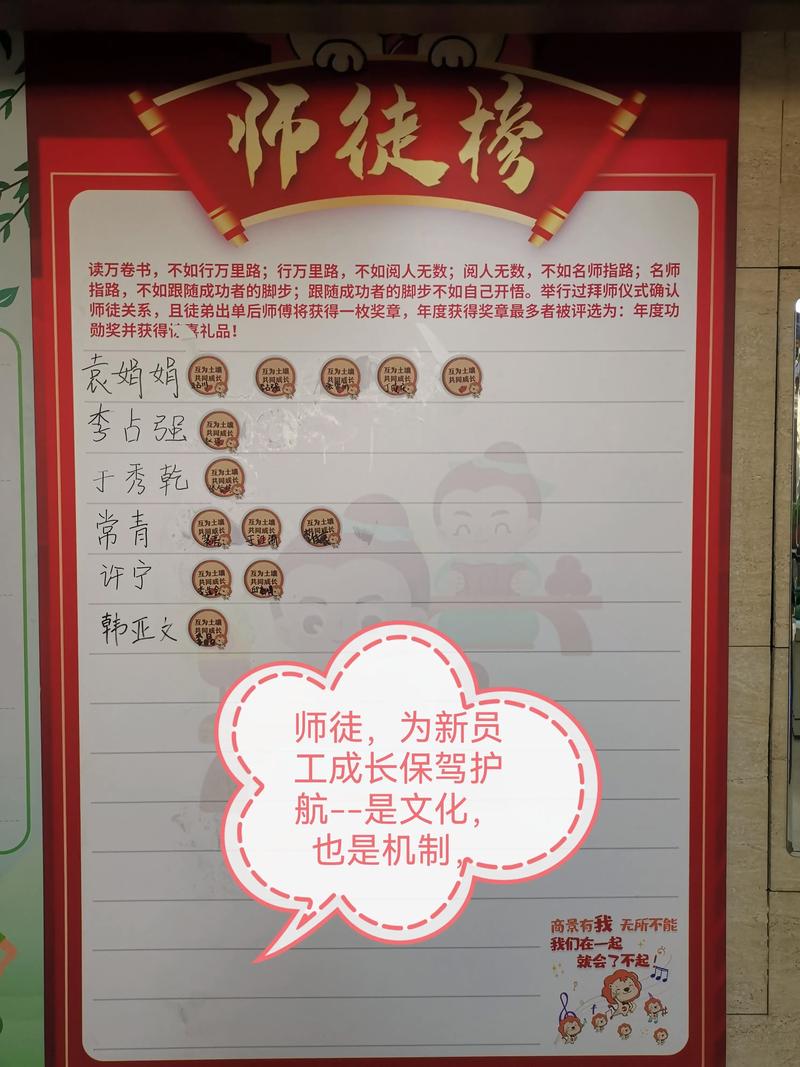 师徒榜
读万卷书，不如行万里路；行万里路，不如阅人无数；阅人无数，不如名师指路；名师
指路，不如跟随成功者的脚步；跟随成功者的脚步不如自己开悟。举行过拜师仪式确认
师徒关系，且徒弟出单后师傅将获得一枚奖章，年度获得奖章最多者被评选为：年度功
勋奖并获得 喜礼品！
袁娟娟 互为土壤 共同成长 互为土壤 共同成长 互为土壤 共同成长 互为土壤 共同成长 互为土壤 共同成长
李占强 互为土壤 共同成长
于秀乾 互为土壤 共同成长
常青 互为土壤 共同成长 互为土壤 共同成长 互为土壤 共同成长
许宁 互为土壤 共同成长 互为土壤 共同成长
韩亚文 互为土壤 共同成长
师徒，为新员
工成长保驾护
航--是文化，
也是机制，
商景有我 无所不能
我们在一起
就会了不起！